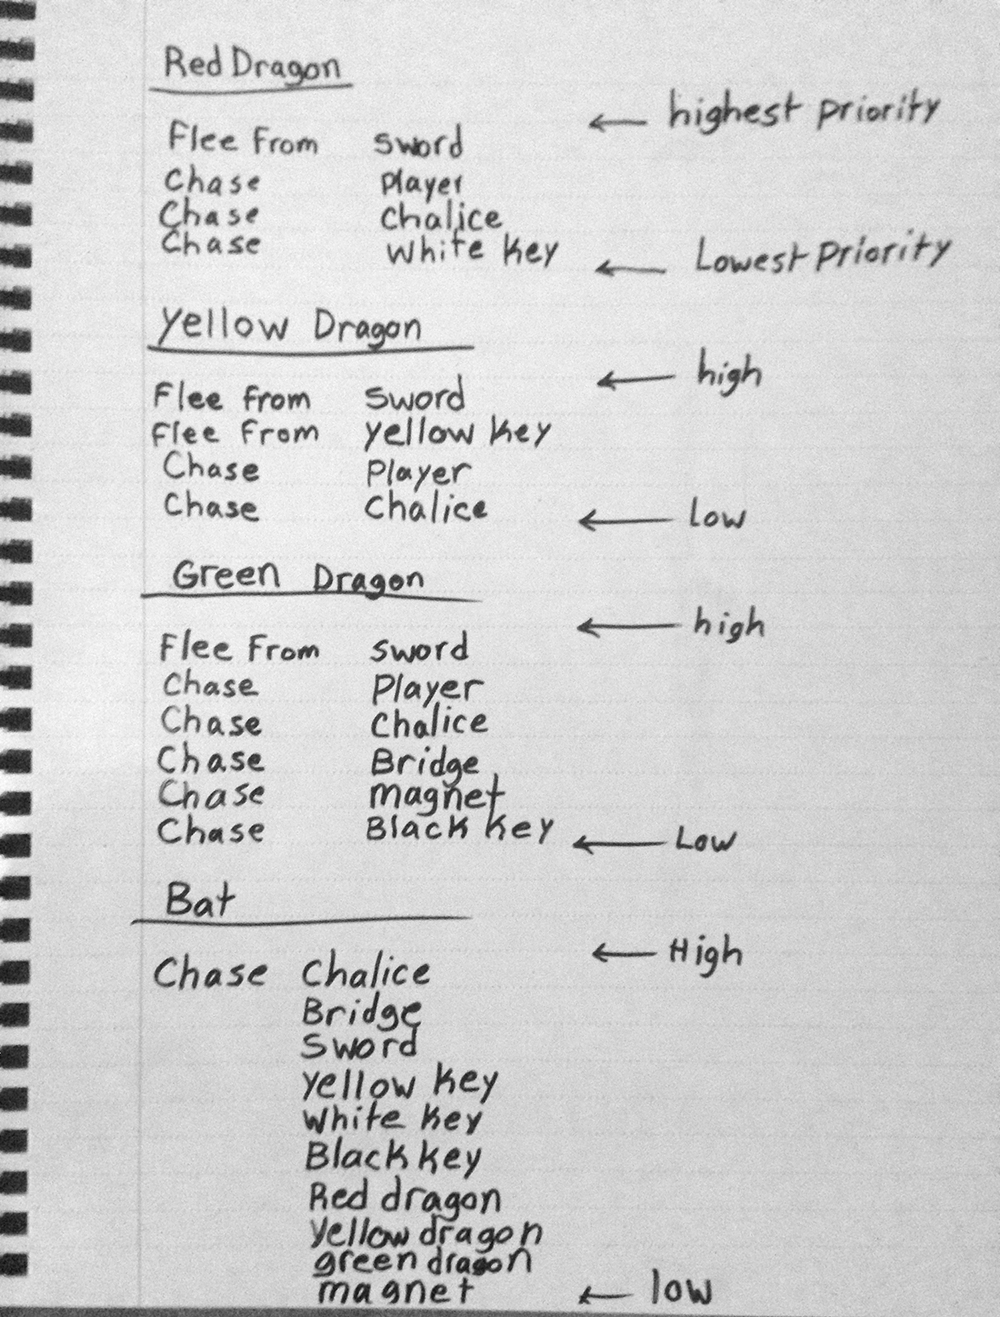 Red Dragon
← highest priority
Flee From sword
Chase Player
Chase Chalice
Chase White Key
← Lowest Priority
Yellow Dragon
← high
Flee from Sword
Flee From yellow key
Chase Player
Chase Chalice
← Low
Green Dragon
← high
Flee From sword
Chase Player
Chase Chalice
Chase Bridge
Chase magnet
Chase Black key ← Low
Bat
← High
Chase Chalice
Bridge
Sword
Yellow key
White key
Black key
Red dragon
Yellow dragon
green dragon
magnet ← low